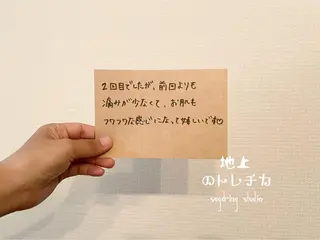 2回目でしたが、前回よりも
痛みが少なくて、お肌も
フワフワな感じになって嬉しいです
地上
のトレチカ